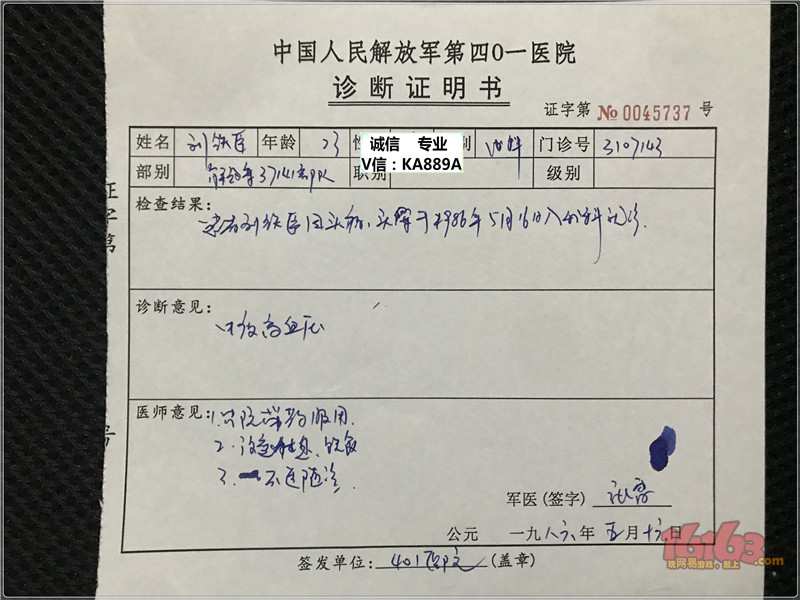 中国人民解放军第四0一医院
诊断证明书
证字第 №0045737 号
姓名 刘 医 年龄 23 诚信 专业 别 内科 门诊号 3107143
V信：KA889A
部别 职别 级别
检查结果：
患者刘 医因头痛、头晕于1986年5月16日入 科 诊.
诊断意见：
I级高血压
医师意见：1. 院 药服用.
2. 注意休息、饮食
3. 不适随诊.
军医(签字)
公元 一九八六年 五月十六日
签发单位：401医院 (盖章)
证字第
号
16163.com
玩网易游戏，就上